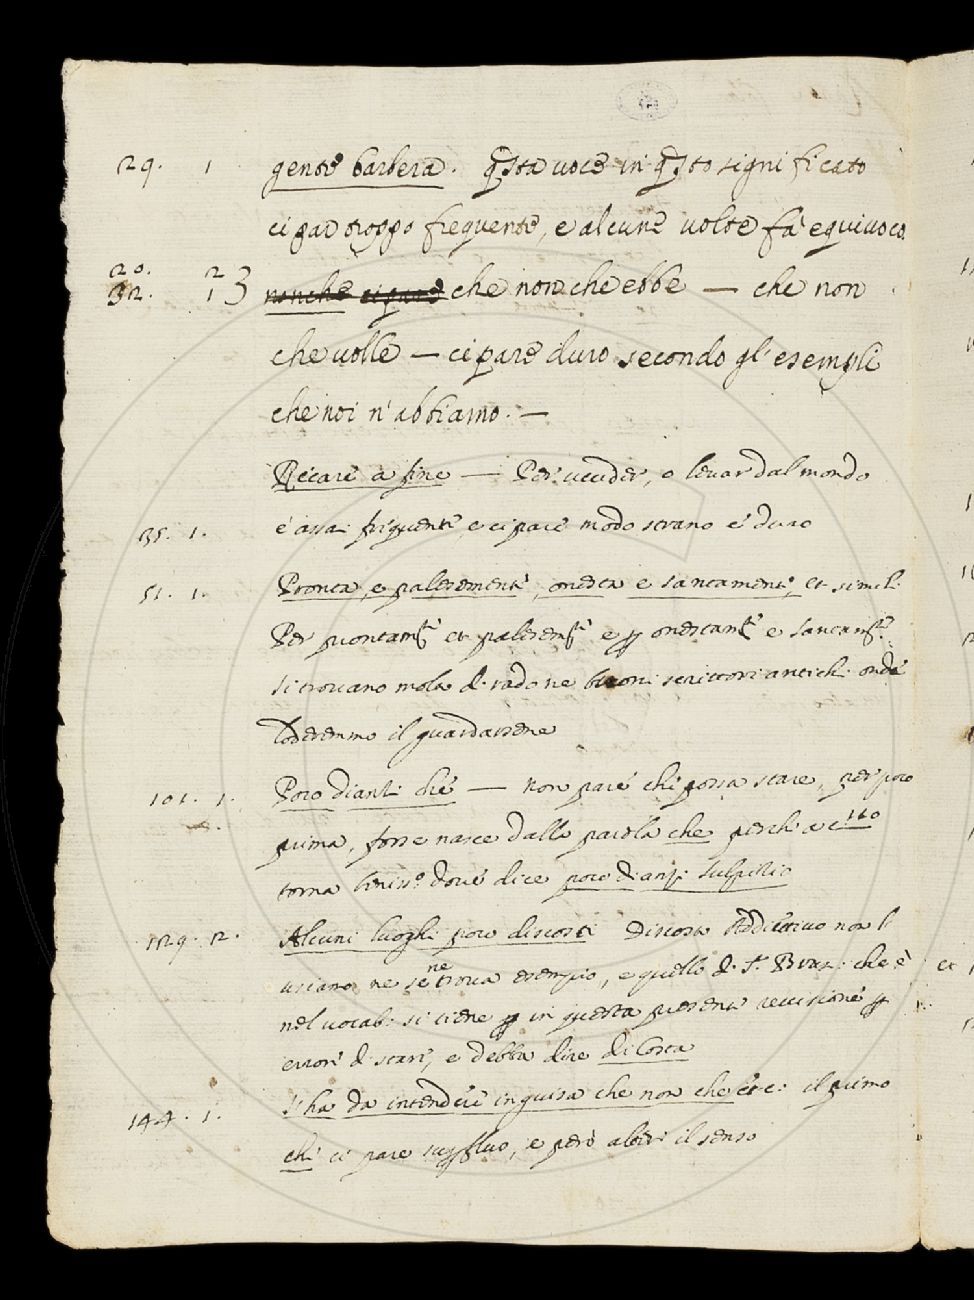 29. 1 gente barbera. q̃sta uoce in q̃sto significato
ci par troppo frequente, e alcune uolte fa equiuoco.
20. 2
32. 1 3 nonche ci pare che non che ebbe — che non
che uolle — ci pare duro secondo gl'esempli
che noi n'abbiamo. —
Recare a fine — Per uccider, o leuar dal mondo
35. 1. è assai frequente e ci pare modo strano e duro
51. 1. Pronta, e palesemente, onesta e santamente, et simili
Per prontamte et palesemte e onestamte e santamte
si trouano molto di rado ne buoni scrittori antichi onde
loderemmo il guardarsene
101. 1. Poco dianzi che — non pare che possa stare, per poco
prima, forse nasce dalla parola che perche a c.
torna beniss.o doue dice poco dianzi Sulpitio
129. 2. Alcuni luoghi poco discosti Discosto Addiettiuo non l'
usiamo ne se ne troua esempio, e quello di Br che è
nel uocab. si tiene in questa presente reuisione
errore di stare, e debba dire di Costa
144. 1. s'ha da intendere in guisa che non che etc. il primo
che ci pare superfluo, e però alteri il senso